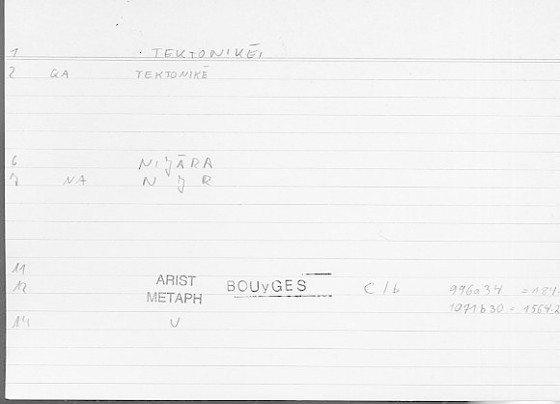 1 TEKTONIKĒI
2 QA TEKTONIKĒ
6 NIǦĀRA
7 NA N Ǧ R
11
12 ARIST METAPH BOUyGES C/b 996a34 = 184.
1071b30 = 1564.2
14 U